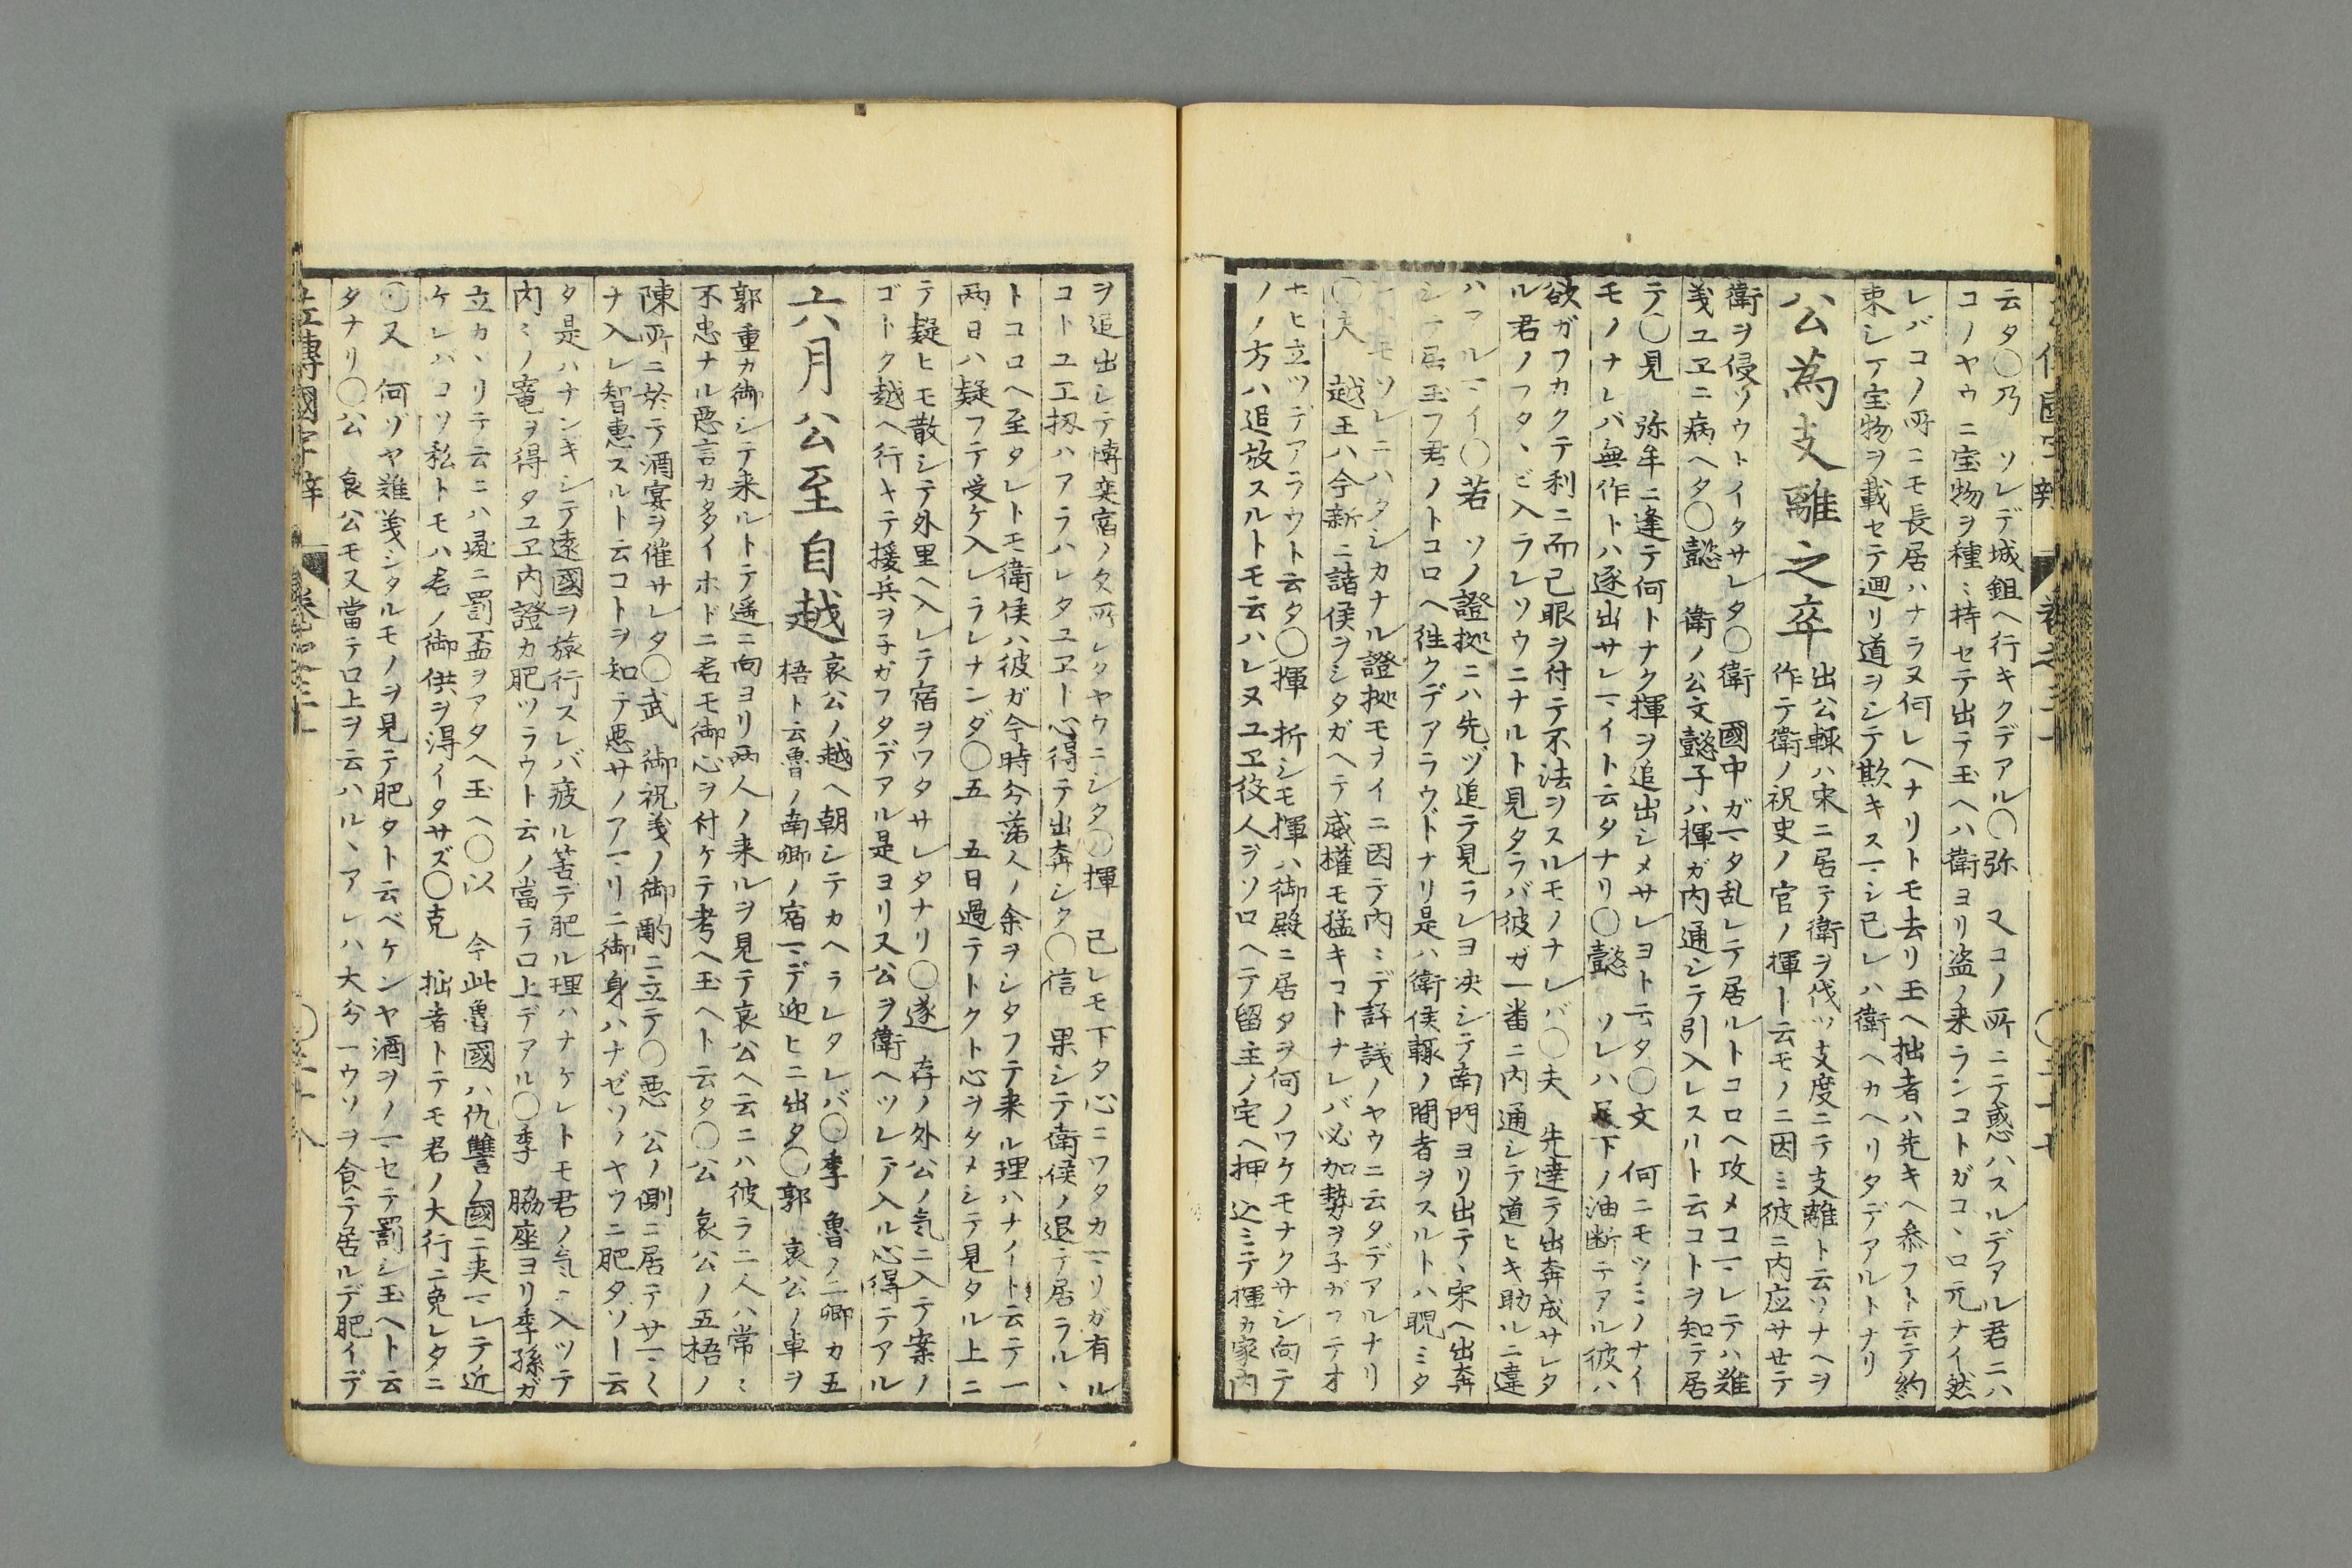 云タ〇乃　ソレデ城鉏ヘ行キクデアル〇弥　又コノ所ニテ惑ハスルデアル君ニハ
コノヤウニ宝物ヲ種〻持セテ出テ玉ヘハ衛ヨリ盗ノ来ランコトガコヽロ元ナイ然
レバコノ所ニモ長居ハナラヌ何レヘナリトモ去リ玉ヘ拙者ハ先キヘ参フト云テ約
束シテ宝物ヲ載セテ廻リ道ヲシテ欺キスマシ己レハ衛ヘカヘリタデアルトナリ
公為支離之卒
出公輒ハ宋ニ居テ衛ヲ伐ツ支度ニテ支離ト云ソナヘヲ
作テ衛ノ祝史ノ官ノ揮ト云モノニ因ミ彼ニ内応サセテ
衛ヲ侵ソウトイタサレタ〇衛　國中ガマタ乱レテ居ルトコロヘ攻メコマレテハ難
義ユヱニ病ヘタ〇懿　衛ノ公文懿子ハ揮ガ内通シテ引入レスルト云コトヲ知テ居
テ〇見　弥牟ニ逢テ何トナク揮ヲ追出シメサレヨト云タ〇文　何ニモツミノナイ
モノナレバ無作トハ逐出サレマイト云タナリ〇懿　ソレハ足下ノ油断テアル彼ハ
欲ガフカクテ利ニ而已眼ヲ付テ不法ヲスルモノナレバ〇夫　先達テ出奔成サレタ
ル君ノフタヽビ入ラレソウニナルト見タラバ彼ガ一番ニ内通シテ道ヒキ助ルニ違
ハアルマイ〇若　ソノ證拠ニハ先ヅ追テ見ラレヨ決シテ南門ヨリ出テヽ宋ヘ出奔
シテ居玉フ君ノトコロヘ往クデアラウトナリ是ハ衛侯輒ノ間者ヲスルトハ覗ミタ
レトモソレニハタシカナル證拠モヲイニ因テ内〻デ評議ノヤウニ云タデアルナリ
〇夫　越王ハ今新ニ諸侯ヲシタガヘテ威權モ猛キコトナレバ必加勢ヲ子ガフテオ
ナヒ立ツデアラウト云タ〇揮　折シモ揮ハ御殿ニ居タヲ何ノワケモナクサシ向テ
ノノ方ハ追放スルトモ云ハレヌユヱ役人ヲソロヘテ留主ノ宅ヘ押込ミテ揮カ家内
ヲ追出シテ博奕宿ノ欠所レクヤウニシタ〇揮　己レモ下タ心ニワタカマリガ有ル
コトユエ扨ハアラハレタユヱト心得テ出奔シタ〇信　果シテ衛侯ノ退テ居ラルヽ
トコロヘ至タレトモ衛侯ハ彼ガ今時分落人ノ余ヲシタフテ来ル理ハナイト云テ一
両日ハ疑フテ受ケ入レラレナンダ〇五　五日過テトクト心ヲタメシテ見タル上ニ
テ疑ヒモ散シテ外里ヘ入レテ宿ヲワタサレタナリ〇遂　存ノ外公ノ気ニ入テ案ノ
ゴトク越ヘ行キテ援兵ヲ子ガフタデアル是ヨリ又公ヲ衛ヘツレテ入ル心得テアル
六月公至自越
哀公ノ越ヘ朝シテカヘラレタレバ〇季　魯ノ二卿カ五
梧ト云魯ノ南鄙ノ宿マデ迎ヒニ出タ〇郭　哀公ノ車ヲ
郭重カ御シテ来ルトテ遙ニ向ヨリ両人ノ来ルヲ見テ哀公ヘ云ニハ彼ラ二人ハ常〻
不忠ナル悪言カ多イホドニ君モ御心ヲ付ケテ考ヘ玉ヘト云タ〇公　哀公ノ五梧ノ
陳所ニ於テ酒宴ヲ催サレタ〇武　御祝義ノ御酌ニ立テ〇悪　公ノ側ニ居テサマ〱
ナ入レ智恵スルト云コトヲ知テ悪サノアマリニ御身ハナゼソノヤウニ肥タソト云
タ是ハナンキシテ遠國ヲ旅行スレバ疲ル筈デ肥ル理ハナケレトモ君ノ気ニ入ツテ
内〻ノ寵ヲ得タユヱ内證カ肥ツラウト云ノ當テ口上デアル〇季　脇座ヨリ季孫ガ
立カヽリテ云ニハ彘ニ罰盃ヲアタヘ玉ヘ〇以　今此魯國ハ仇讐ノ國ニ夹マレテ近
ケレバコソ私トモハ君ノ御供ヲ得イタサズ〇克　拙者トテモ君ノ大行ニ免レタニ
〇又　何ゾヤ難義シタルモノヲ見テ肥タト云ベケンヤ酒ヲノマセテ罰シ玉ヘト云
タナリ〇公　哀公モ又當テロ上ヲ云ハルヽアレハ大分一ウソヲ食テ居ルデ肥イデ
左傳國字辯